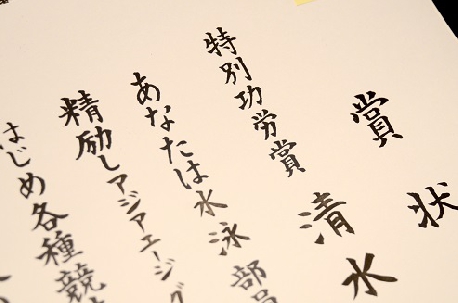 賞状
特別功労賞
清水
あなたは水泳部員
精励しアジアエージグ
はじめ各種競